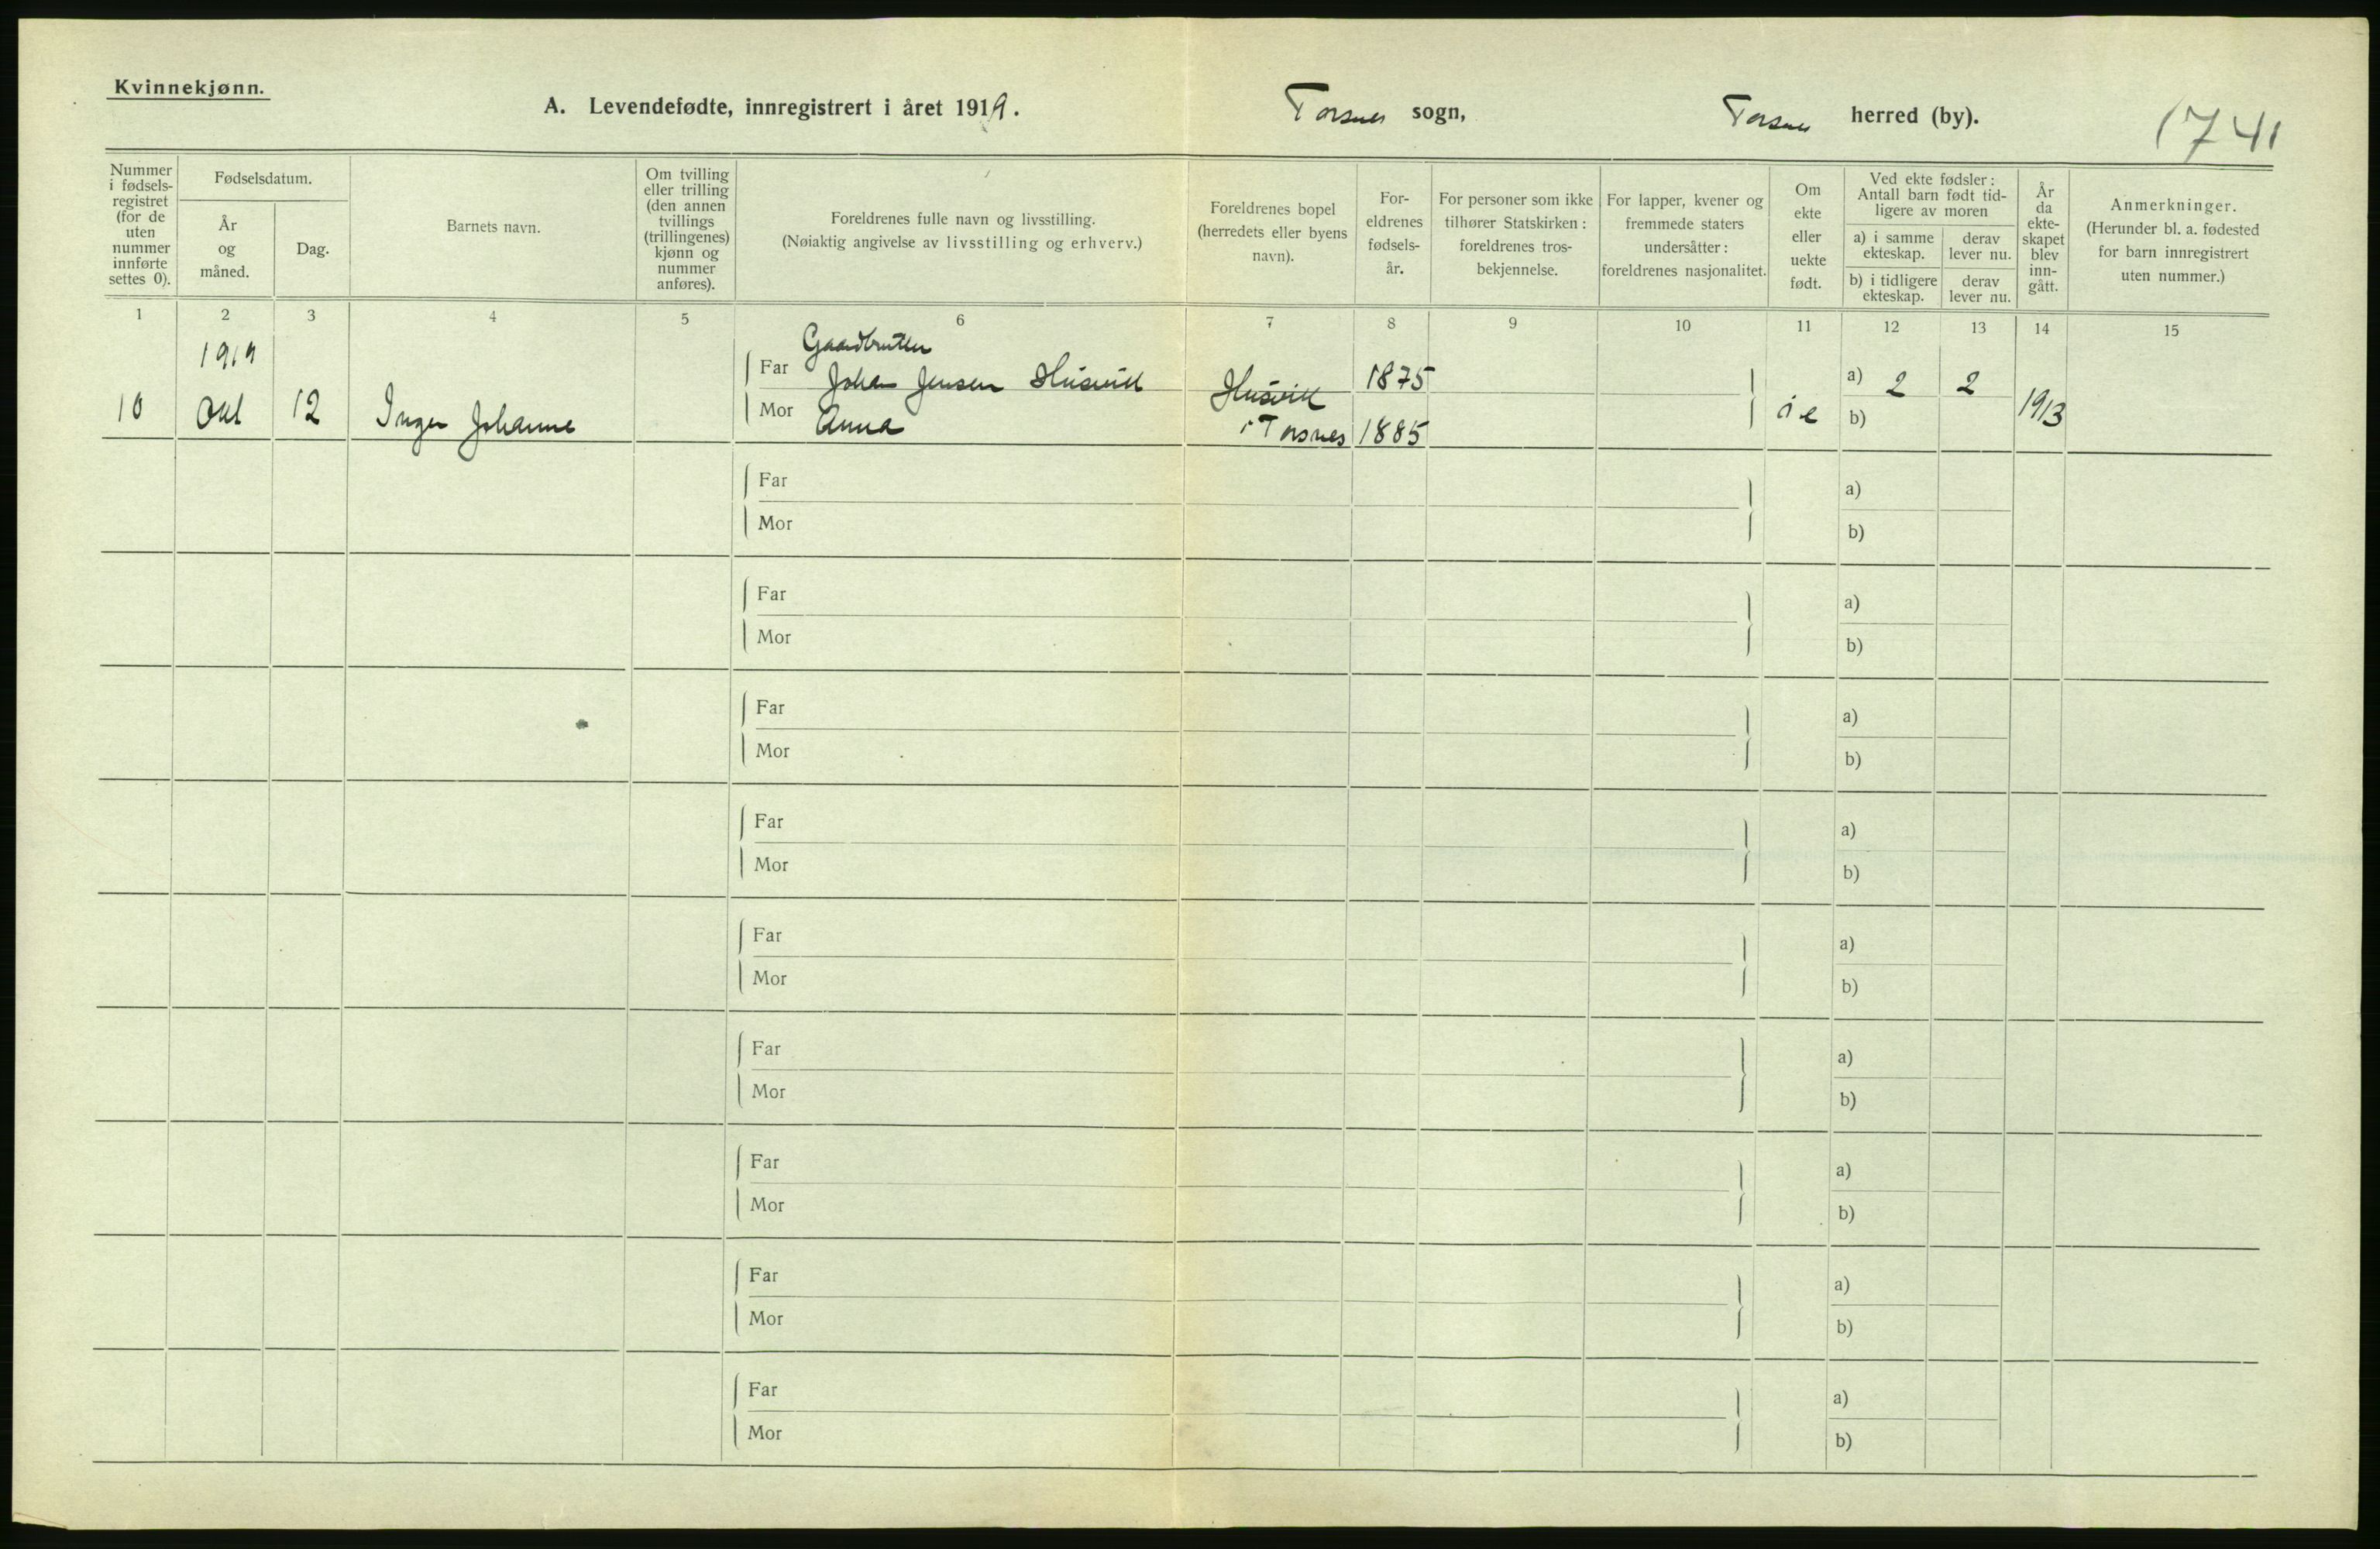 Kvinnekjønn.
A. Levendefødte, innregistrert i året 1919.
Torsnes sogn,
Torsnes herred (by).
1741
Nummer i fødsels-registret (for de uten nummer innførte settes 0).
Fødselsdatum.
År og måned.
Dag.
Barnets navn.
Om tvilling eller trilling (den annen tvillings (trillingenes) kjønn og nummer anføres).
Foreldrenes fulle navn og livsstilling.
(Nøiaktig angivelse av livsstilling og erhverv.)
Foreldrenes bopel (herredets eller byens navn).
For-eldrenes fødsels-år.
For personer som ikke tilhører Statskirken: foreldrenes tros-bekjennelse.
For lapper, kvener og fremmede staters undersåtter: foreldrenes nasjonalitet.
Om ekte eller uekte født.
Ved ekte fødsler: Antall barn født tid-ligere av moren
a) i samme ekteskap.
derav lever nu.
b) i tidligere ekteskap.
derav lever nu.
År da ekte-skapet blev inn-gått.
Anmerkninger.
(Herunder bl. a. fødested for barn innregistrert uten nummer.)
1 2 3 4 5 6 7 8 9 10 11 12 13 14 15
1919
Gaardbruker
Far Johan Jensen Husvik Husvik 1875 a) 2 2
10 Okt 12 Inger Johanne Mor Anna i Torsnes 1885 ie b) 1913
Far a)
Mor b)
Far a)
Mor b)
Far a)
Mor b)
Far a)
Mor b)
Far a)
Mor b)
Far a)
Mor b)
Far a)
Mor b)
Far a)
Mor b)
Far a)
Mor b)